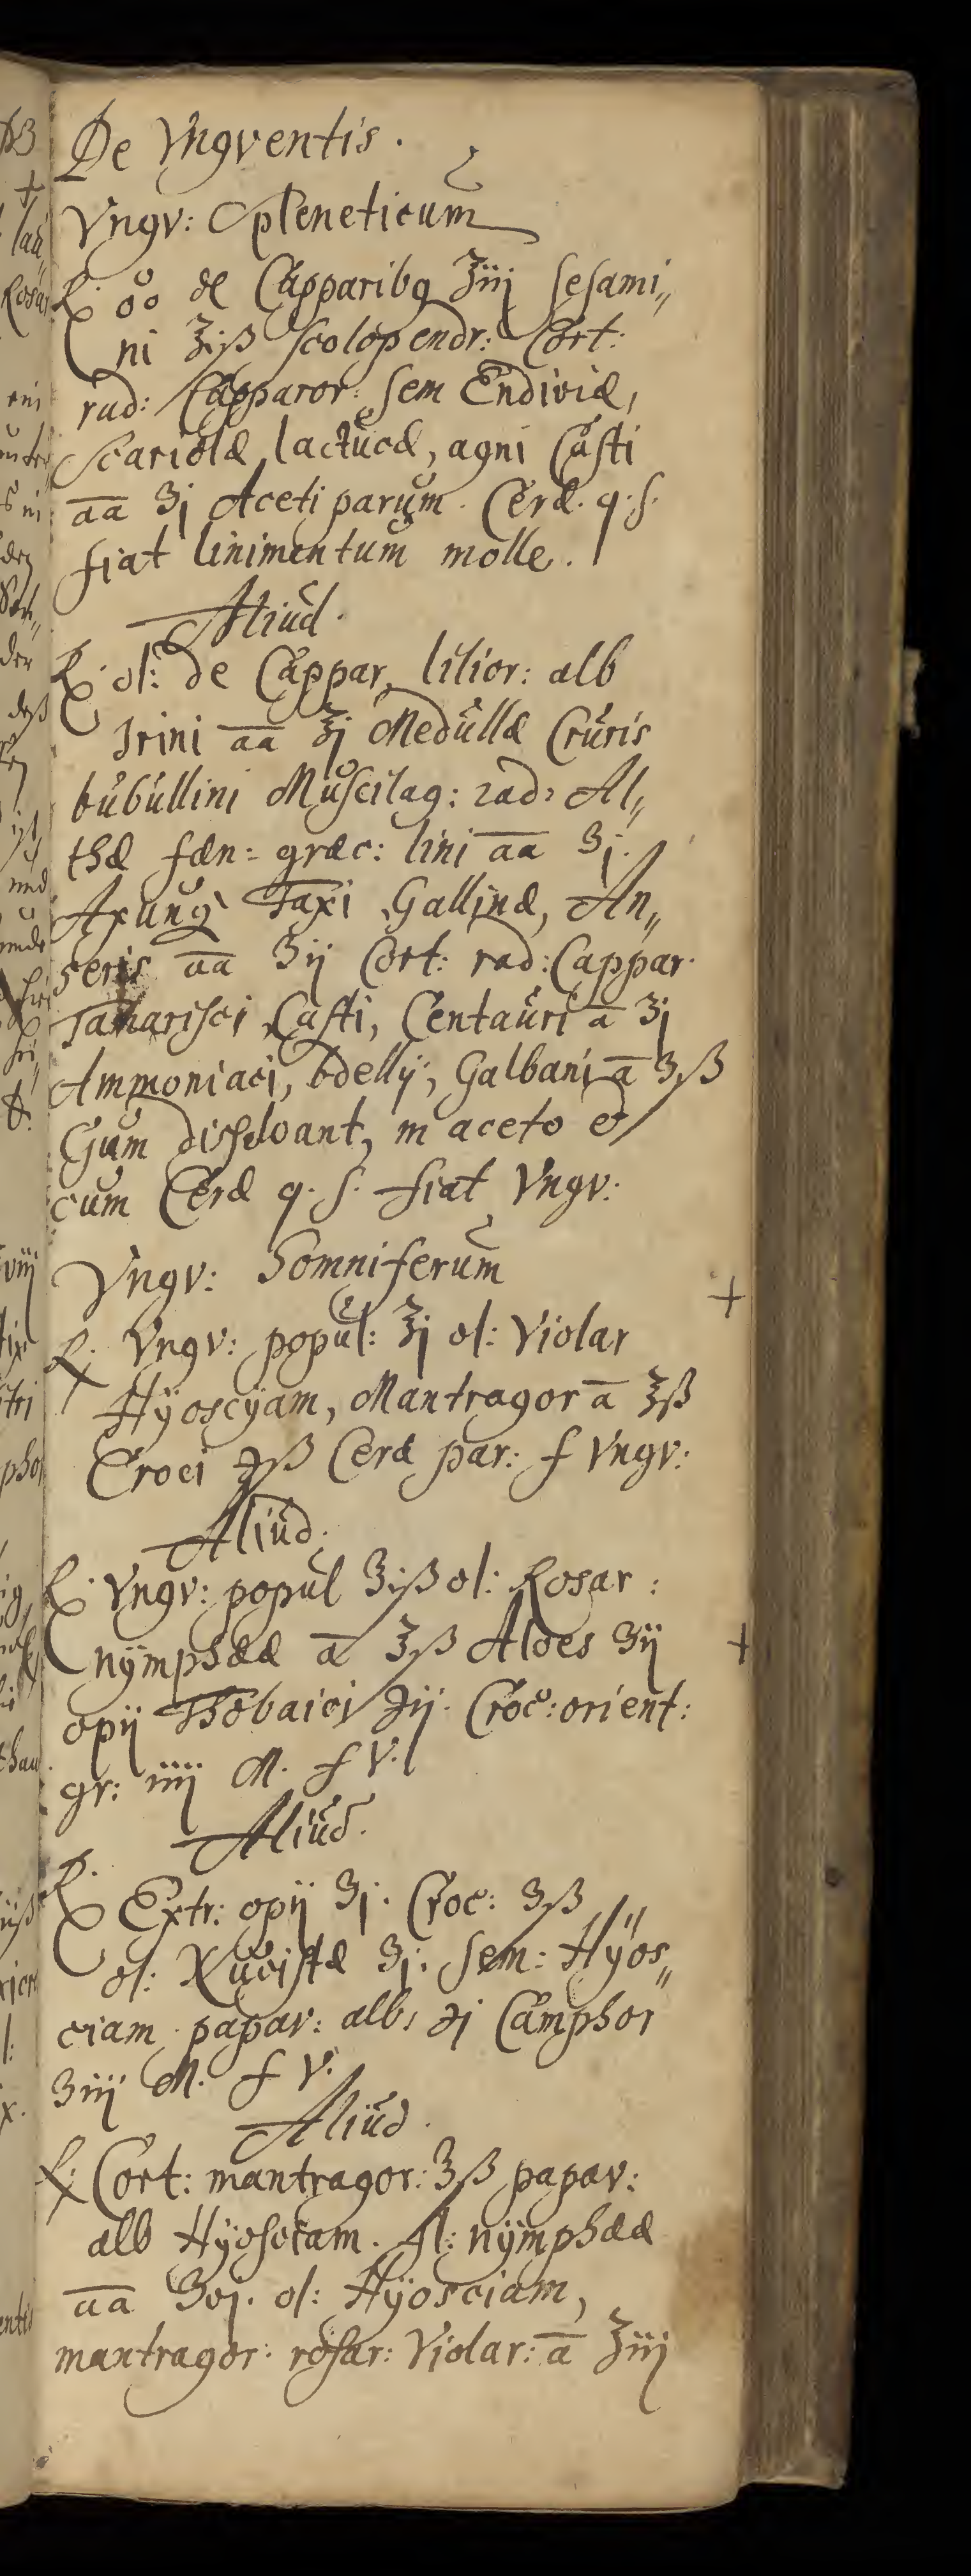 De Vngventis.
Vngv: Spleneticum
℞. oo de Capparibq ℥iij Sesami„
ni ℥iß Scolopendr: Cort:
rad: Capparor: Sem Endiviæ,
Scariolæ lactucæ, agni Casti
āā ʒj Aceti parum. Ceræ. q. s.
fiat linimentum molle.
Aliud.
℞. ol: de Cappar, lilior: alb
Irini āā ℥j Medullæ Cruris
bubullini Muscilag: rad: Al„
thæ fæn= græc: lini āā ʒj.
Axung Taxi Gallinæ, An„
seris āā ʒij Cort: rad: Cappar.
Tamarisci Casti, Centauri ā ʒj
Ammoniaci, bdellÿ, Galbani ā ʒß
Gum dissolvant, in aceto et
cum Ceræ q. s. fiat Vngv:
Vngv: Somniferum
+
℞. Vngv: popul: ℥j ol: Violar
Hÿoscÿam, Mantragor ā ℥ß
Croci ℈ß Ceræ par: f Vngv:
Aliud.
℞. Vngv: popul ʒiß ol: Rosar:
nÿmphææ ā ℥ß Aloes ʒij
+
opij Thobaici ℈ij. Croc: orient:
gr: iiij M. f V.
Aliud.
℞.
Extr: opij ʒj. Croc: ʒß
ol: Nucistæ ʒj. Sem: Hÿos„
ciam papav: alb: ℈j Camphor
ʒiij M. f V.
Aliud.
℞: Cort: mantragor: ℥ß papav:
alb Hÿosciam. fl: nÿmphææ
āā ʒvj. ol: Hÿosciam,
mantragor: rosar: Violar: ā ℥iij